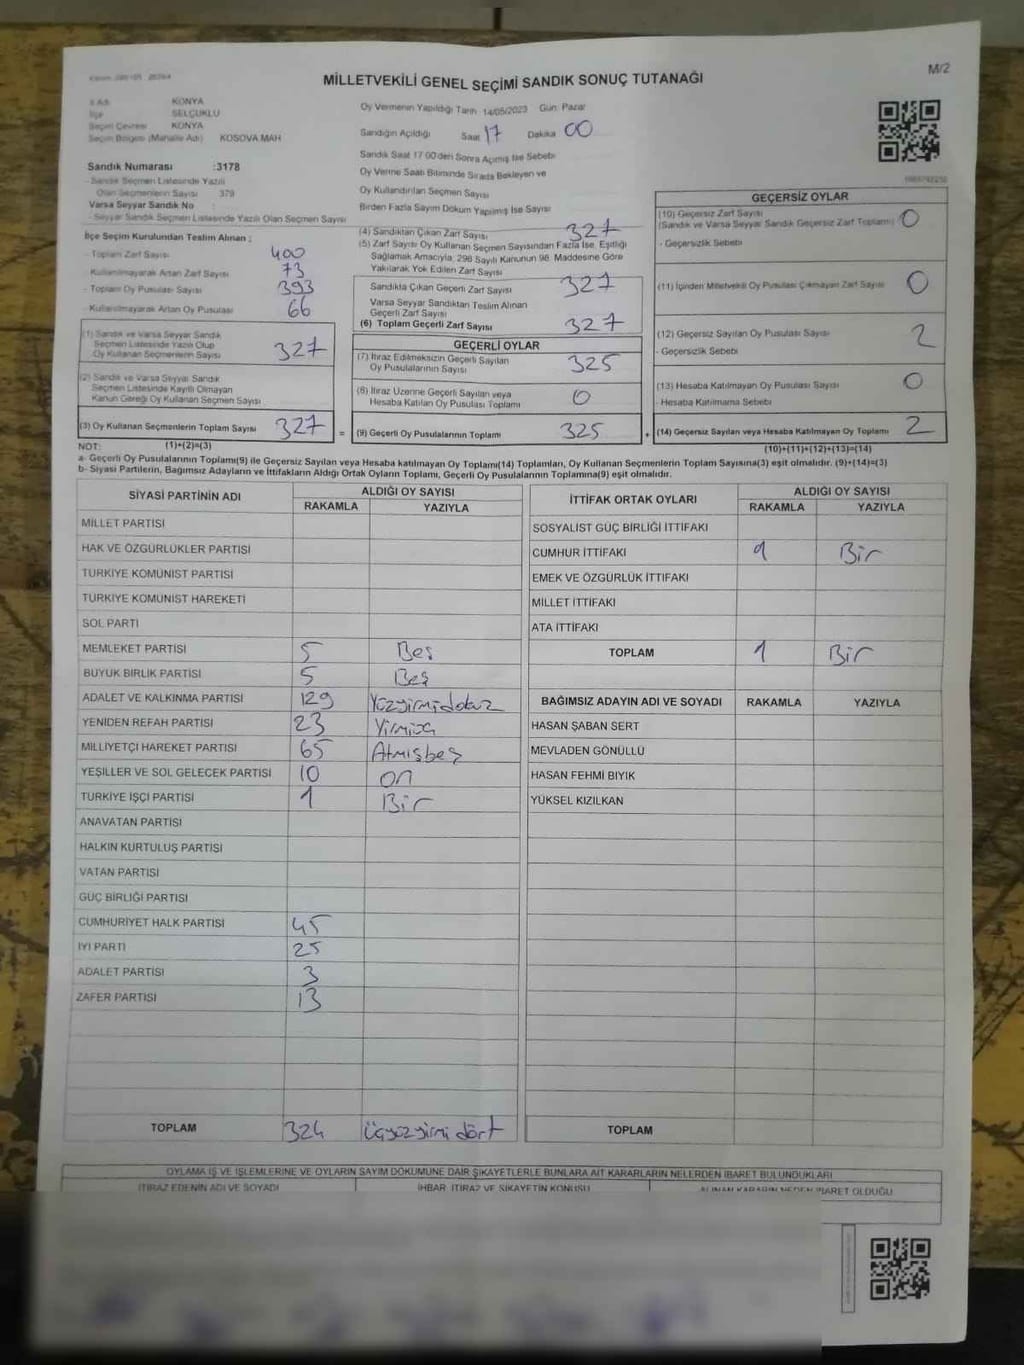 MİLLETVEKİLİ GENEL SEÇİMİ SANDIK SONUÇ TUTANAĞI
M/2
KONYA
İlçe SELÇUKLU
Seçim Çevresi KONYA
Seçim Bölgesi (Mahalle Adı) KOSOVA MAH
Oy Vermenin Yapıldığı Tarih 14/05/2023 Gün: Pazar
Sandığın Açıldığı Saat 17 Dakika 00
Sandık Saat 17 00'den Sonra Açılmış İse Sebebi
Oy Verme Saati Bitiminde Sırada Bekleyen ve
Oy Kullandırılan Seçmen Sayısı
Birden Fazla Sayım Döküm Yapılmış İse Sayısı
Sandık Numarası :3178
- Sandık Seçmen Listesinde Yazılı
Olan Seçmenlerin Sayısı : 379
Varsa Seyyar Sandık No :
- Seyyar Sandık Seçmen Listesinde Yazılı Olan Seçmen Sayısı
İlçe Seçim Kurulundan Teslim Alınan :
- Toplam Zarf Sayısı 400
- Kullanılmayarak Artan Zarf Sayısı 73
- Toplam Oy Pusulası Sayısı 393
- Kullanılmayarak Artan Oy Pusulası 66
(1) Sandık ve Varsa Seyyar Sandık
Seçmen Listesinde Yazılı Olup
Oy Kullanan Seçmenlerin Sayısı 327
(2) Sandık ve Varsa Seyyar Sandık
Seçmen Listesinde Kayıtlı Olmayan
Kanun Gereği Oy Kullanan Seçmen Sayısı
(3) Oy Kullanan Seçmenlerin Toplam Sayısı 327
(4) Sandıktan Çıkan Zarf Sayısı 327
(5) Zarf Sayısı Oy Kullanan Seçmen Sayısından Fazla İse, Eşitliği
Sağlamak Amacıyla, 298 Sayılı Kanunun 98. Maddesine Göre
Yakılarak Yok Edilen Zarf Sayısı
Sandıkta Çıkan Geçerli Zarf Sayısı 327
Varsa Seyyar Sandıktan Teslim Alınan
Geçerli Zarf Sayısı
(6) Toplam Geçerli Zarf Sayısı 327
GEÇERLİ OYLAR
(7) İtiraz Edilmeksizin Geçerli Sayılan
Oy Pusulalarının Sayısı 325
(8) İtiraz Üzerine Geçerli Sayılan veya
Hesaba Katılan Oy Pusulası Toplamı 0
= (9) Geçerli Oy Pusulalarının Toplamı 325
GEÇERSİZ OYLAR
(10) Geçersiz Zarf Sayısı
(Sandık ve Varsa Seyyar Sandık Geçersiz Zarf Toplamı) 0
- Geçersizlik Sebebi
(11) İçinden Milletvekili Oy Pusulası Çıkmayan Zarf Sayısı 0
(12) Geçersiz Sayılan Oy Pusulası Sayısı 2
- Geçersizlik Sebebi
(13) Hesaba Katılmayan Oy Pusulası Sayısı 0
- Hesaba Katılmama Sebebi
+ (14) Geçersiz Sayılan veya Hesaba Katılmayan Oy Toplamı 2
NOT: (1)+(2)=(3)
(10)+(11)+(12)+(13)=(14)
a- Geçerli Oy Pusulalarının Toplamı(9) ile Geçersiz Sayılan veya Hesaba katılmayan Oy Toplamı(14) Toplamları, Oy Kullanan Seçmenlerin Toplam Sayısına(3) eşit olmalıdır. (9)+(14)=(3)
b- Siyasi Partilerin, Bağımsız Adayların ve İttifakların Aldığı Ortak Oyların Toplamı, Geçerli Oy Pusulalarının Toplamına(9) eşit olmalıdır.
SİYASİ PARTİNİN ADI ALDIĞI OY SAYISI
RAKAMLA YAZIYLA
MİLLET PARTİSİ
HAK VE ÖZGÜRLÜKLER PARTİSİ
TÜRKİYE KOMÜNİST PARTİSİ
TÜRKİYE KOMÜNİST HAREKETİ
SOL PARTİ
MEMLEKET PARTİSİ 5 Beş
BÜYÜK BİRLİK PARTİSİ 5 Beş
ADALET VE KALKINMA PARTİSİ 129 Yüzyirmidokuz
YENİDEN REFAH PARTİSİ 23 Yirmiüç
MİLLİYETÇİ HAREKET PARTİSİ 65 Atmışbeş
YEŞİLLER VE SOL GELECEK PARTİSİ 10 On
TÜRKİYE İŞÇİ PARTİSİ 1 Bir
ANAVATAN PARTİSİ
HALKIN KURTULUŞ PARTİSİ
VATAN PARTİSİ
GÜÇ BİRLİĞİ PARTİSİ
CUMHURİYET HALK PARTİSİ 45
İYİ PARTİ 25
ADALET PARTİSİ 3
ZAFER PARTİSİ 13
TOPLAM 324 Üçyüzyirmi dört
İTTİFAK ORTAK OYLARI ALDIĞI OY SAYISI
RAKAMLA YAZIYLA
SOSYALİST GÜÇ BİRLİĞİ İTTİFAKI
CUMHUR İTTİFAKI 1 Bir
EMEK VE ÖZGÜRLÜK İTTİFAKI
MİLLET İTTİFAKI
ATA İTTİFAKI
TOPLAM 1 Bir
BAĞIMSIZ ADAYIN ADI VE SOYADI RAKAMLA YAZIYLA
HASAN ŞABAN SERT
MEVLADEN GÖNÜLLÜ
HASAN FEHMİ BIYIK
YÜKSEL KIZILKAN
TOPLAM
OYLAMA İŞ VE İŞLEMLERİNE VE OYLARIN SAYIM DÖKÜMÜNE DAİR ŞİKAYETLERLE BUNLARA AİT KARARLARIN NELERDEN İBARET BULUNDUKLARI
İTİRAZ EDENİN ADI VE SOYADI İHBAR, İTİRAZ VE ŞİKAYETİN KONUSU ALINAN KARARIN NEDEN İBARET OLDUĞU